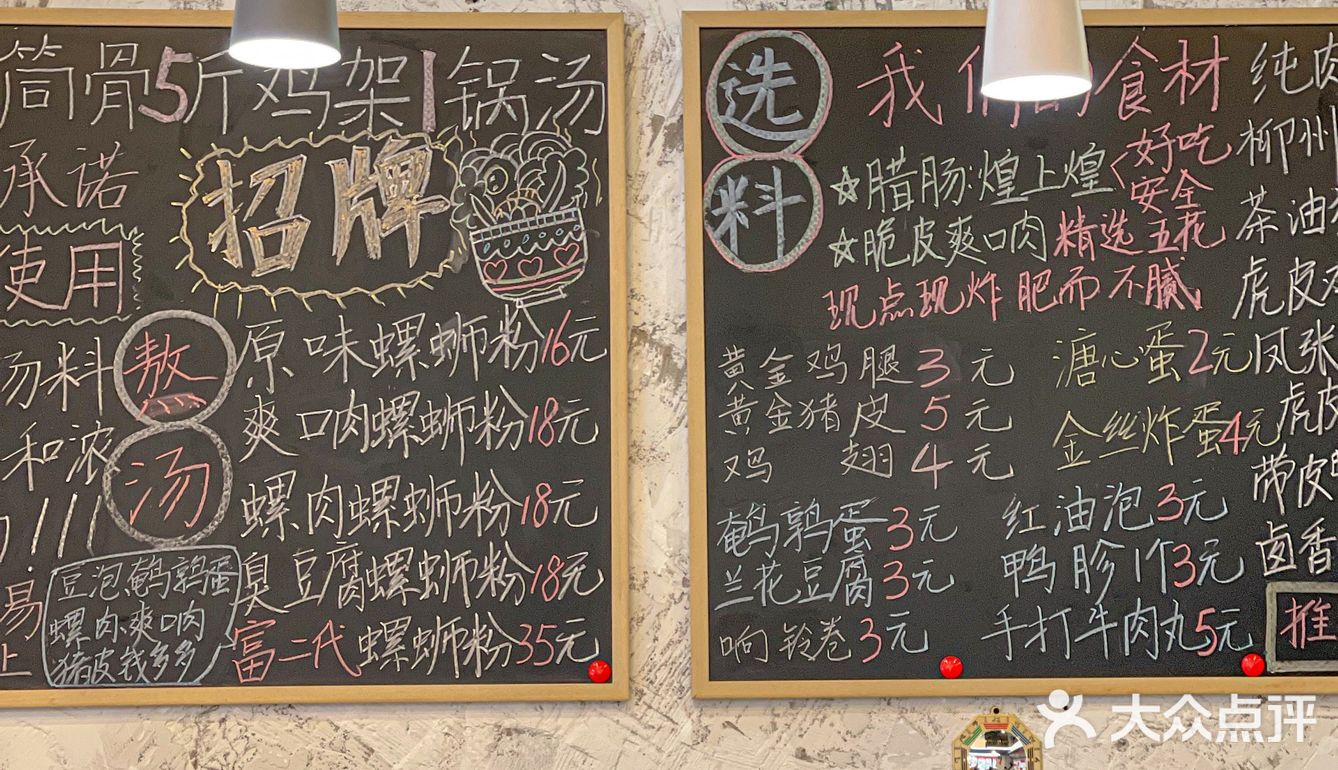 筒骨5斤鸡架1锅汤
承诺
招牌
使用
汤料
熬
汤
和浓
!!!
易
上
原味螺蛳粉16元
爽口肉螺蛳粉18元
螺肉螺蛳粉18元
臭豆腐螺蛳粉18元
富二代螺蛳粉35元
豆泡鹌鹑蛋
螺肉爽口肉
猪皮钱多多
选
料
我们的食材
☆腊肠:煌上煌<好吃
安全
☆脆皮爽口肉精选五花
现点现炸肥而不腻
黄金鸡腿3元
黄金猪皮5元
鸡翅4元
鹌鹑蛋3元
兰花豆腐3元
响铃卷3元
溏心蛋2元
金丝炸蛋4元
红油泡3元
鸭胗1个3元
手打牛肉丸5元
纯肉
柳州
茶油
虎皮鸡
凤张
虎皮
带皮
卤香
推
大众点评